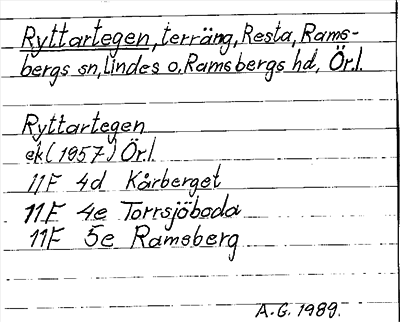 Ryttartegen, terräng, Resta, Rams-
bergs sn, Lindes o. Ramsbergs hd, Örl.
Ryttartegen
ek (1957) Örl.
11F 4d Kårberget
11F 4e Torrsjöboda
11F 5e Ramsberg
A.G. 1989.